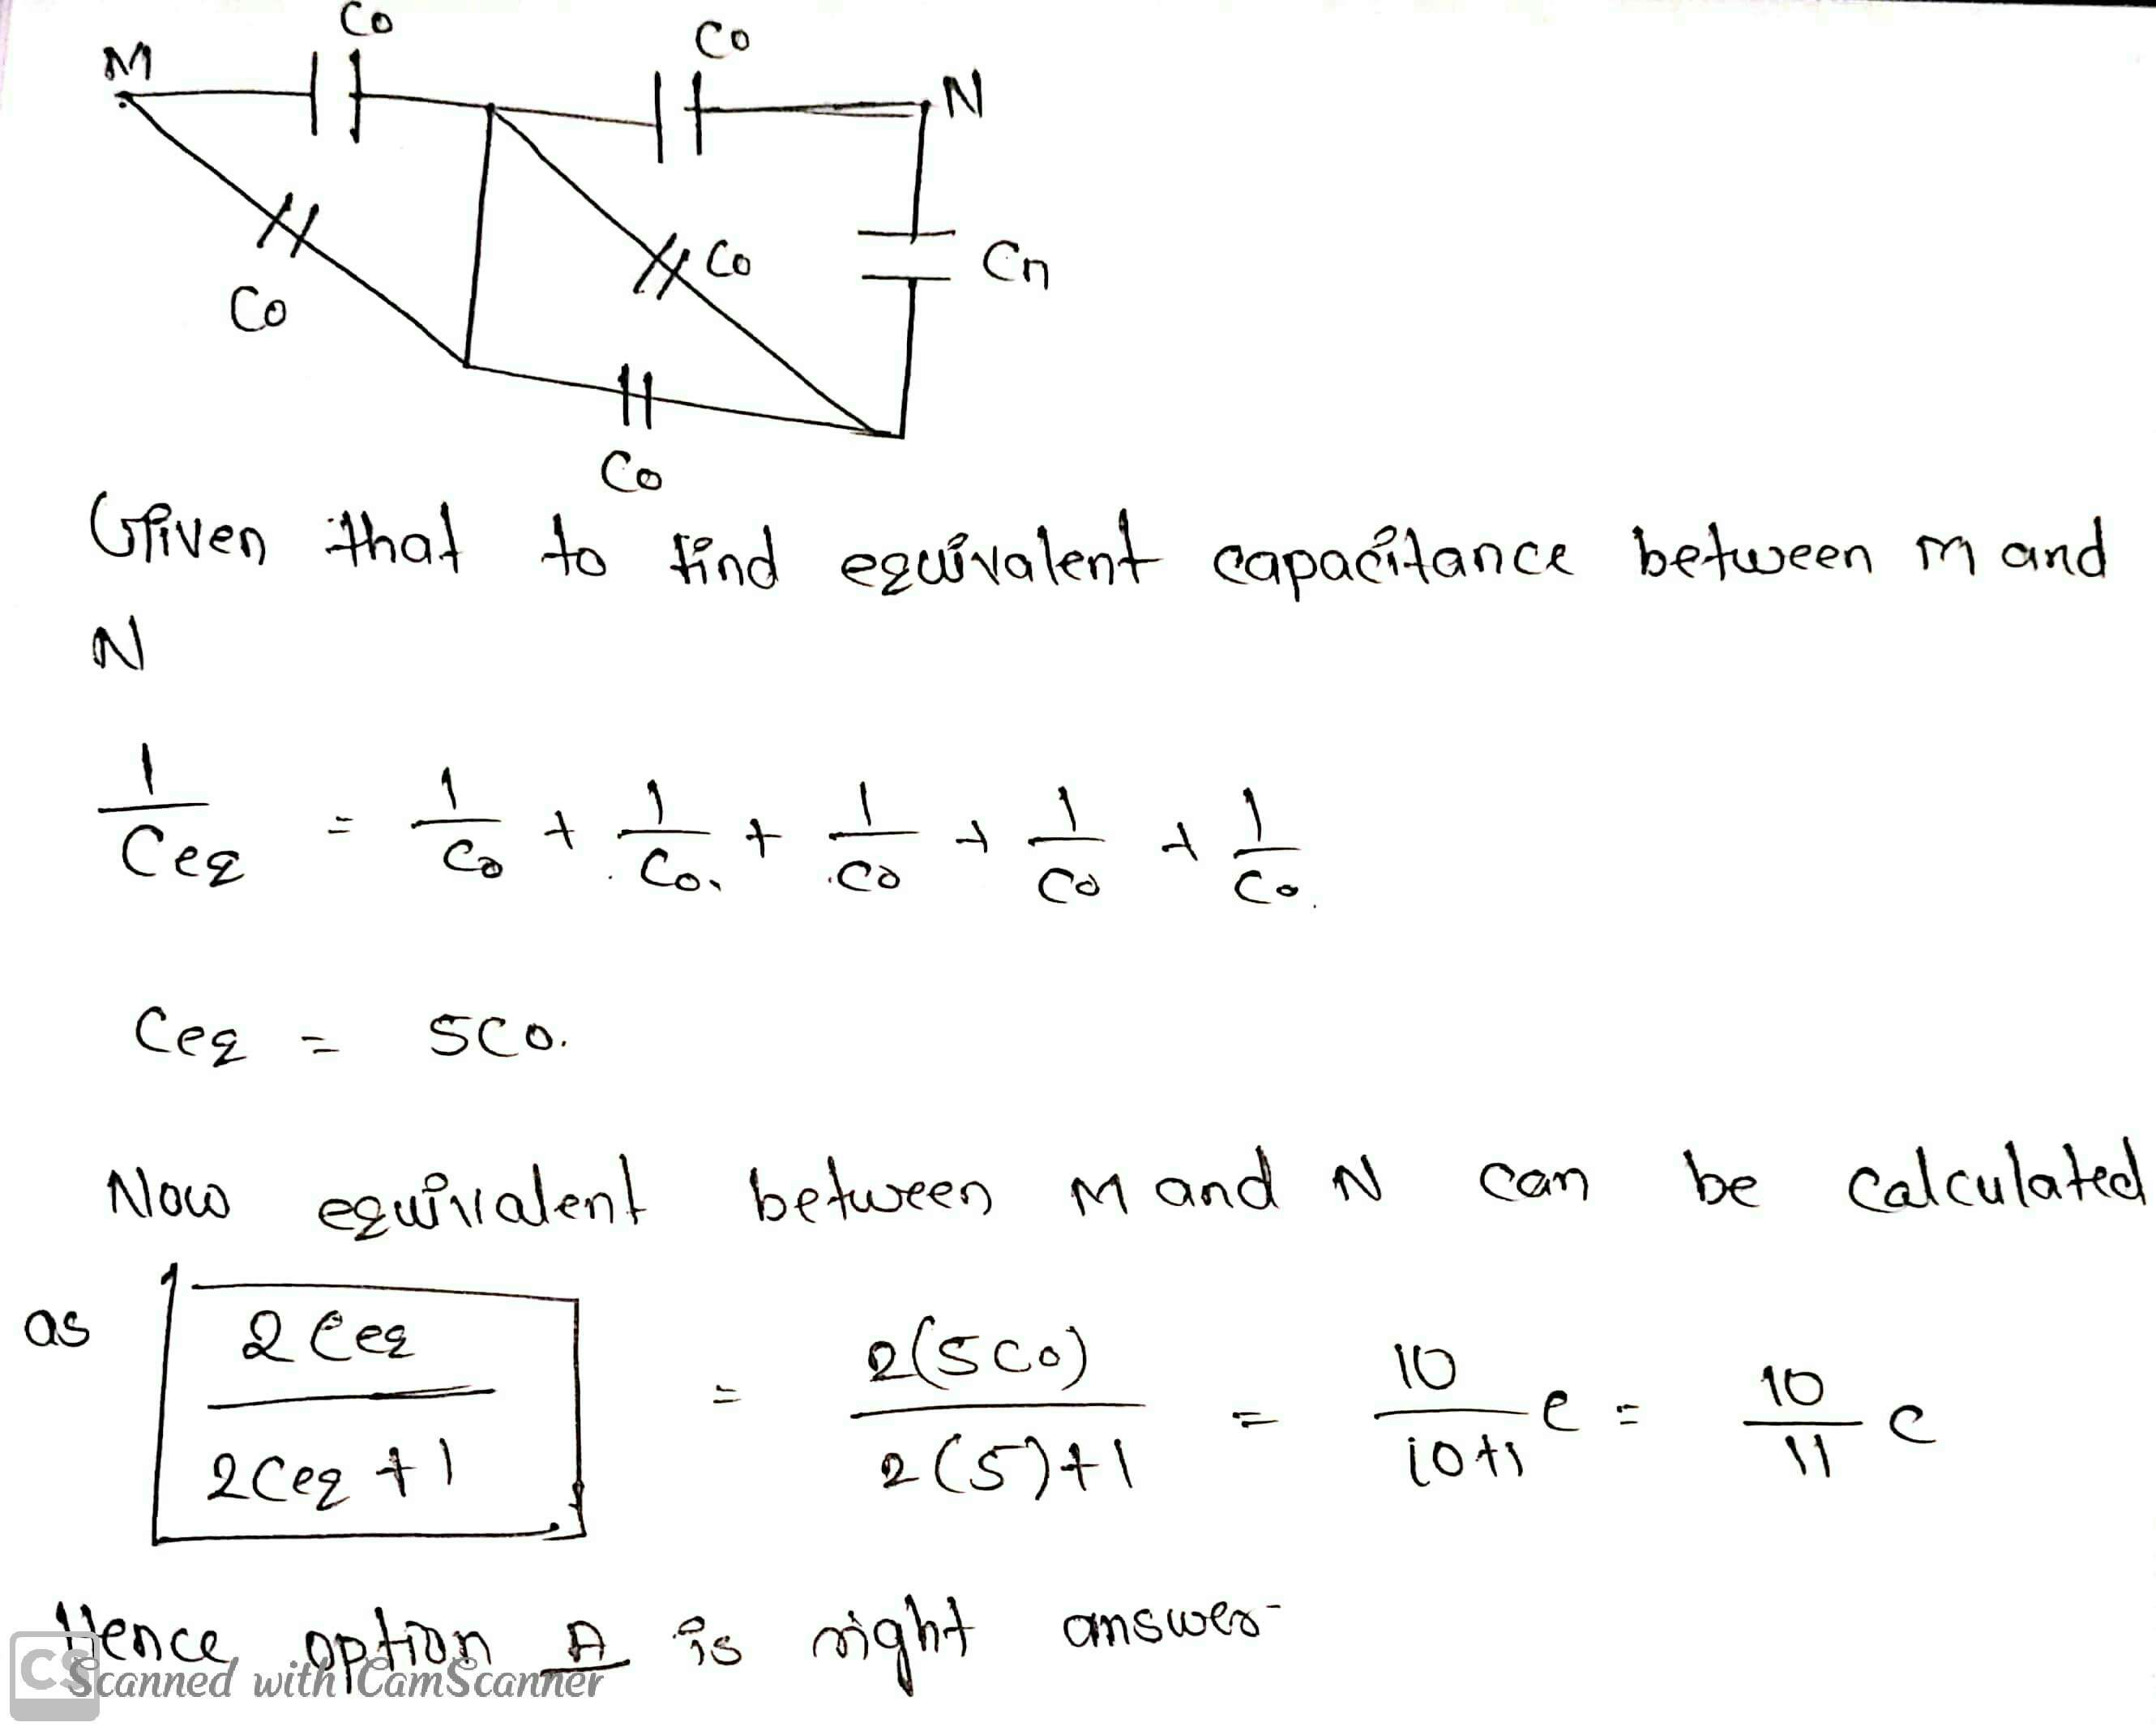 Co
Co
M
N
Co
Cn
Co
Co
Given that to find equivalent capacitance between m and
N
1/Ceq = 1/Co + 1/Co + 1/Co + 1/Co + 1/Co.
Ceq = 5Co.
Now equivalent between M and N can be calculated
as 2Ceq / 2Ceq + 1 = 2(5Co) / 2(5)+1 = 10/10+1 e = 10/11 C
Hence option A is right answer
CS Scanned with CamScanner